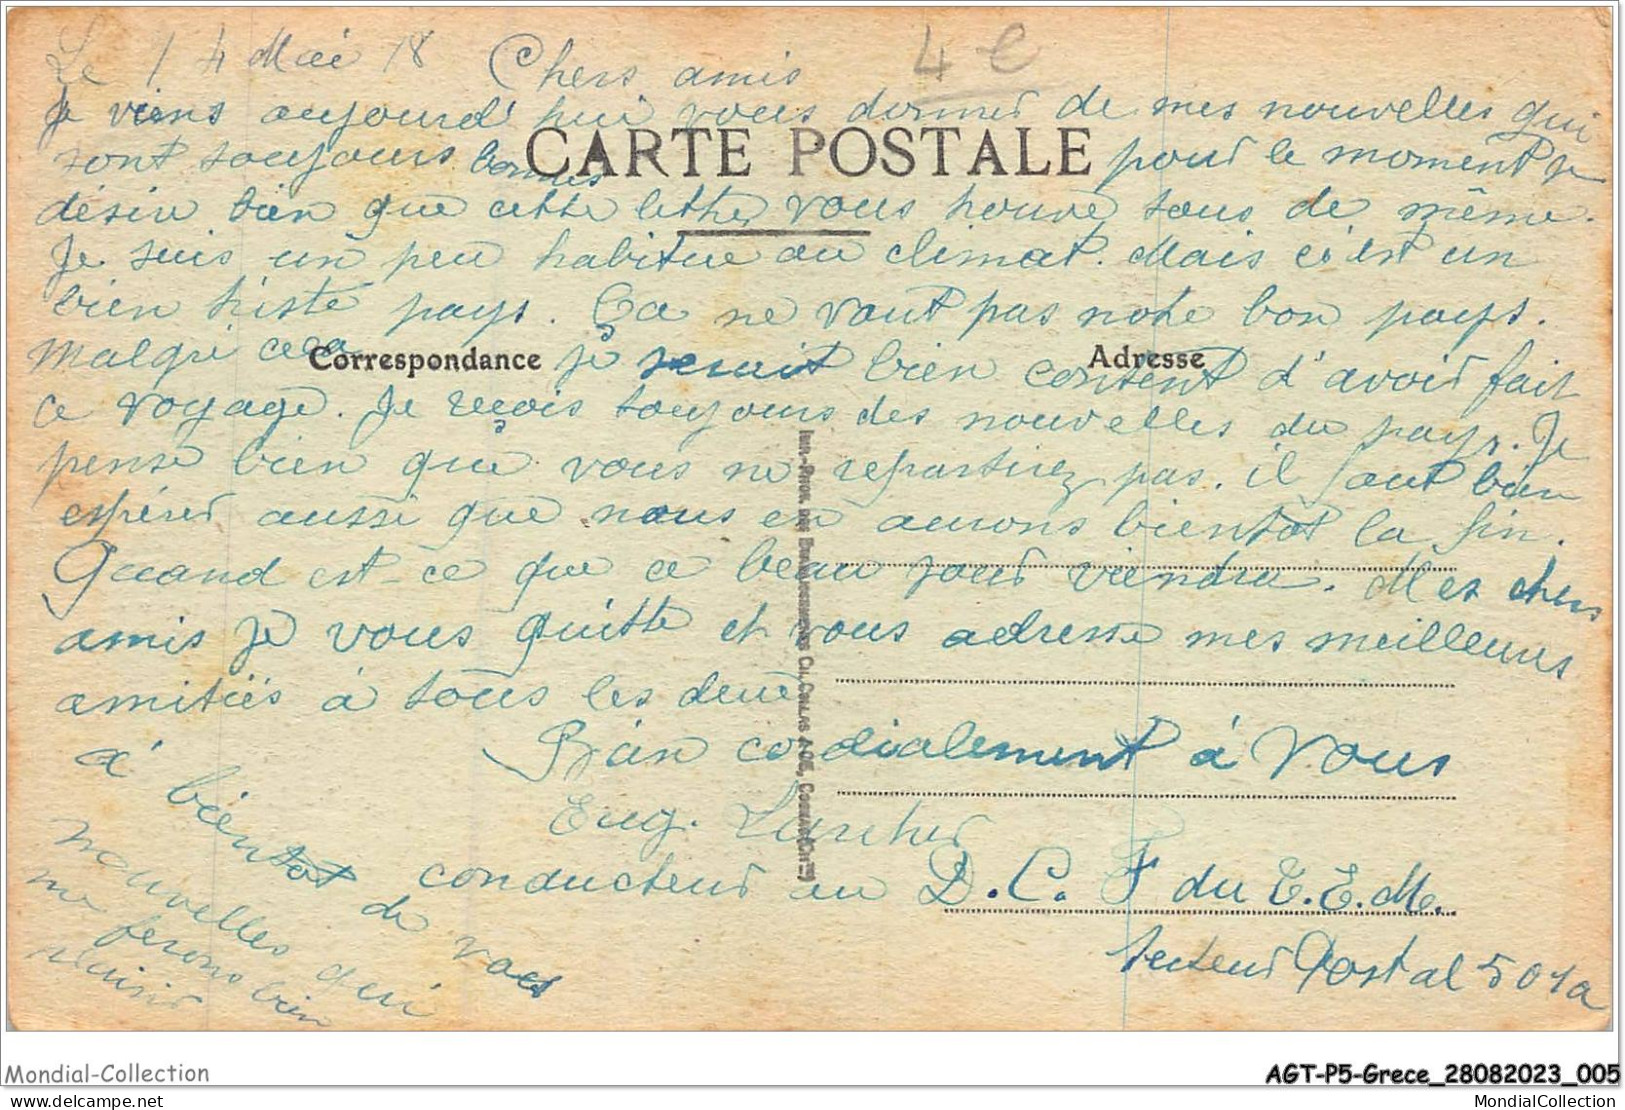 Le 14 Mai 18 Chers amis 4 €
Je viens aujourd'hui vous donner de mes nouvelles qui
sont toujours bonnes CARTE POSTALE pour le moment je
désire bien que cette lettre vous trouve tous de même.
Je suis un peu habitue au climat. Mais c'est un
bien triste pays. Ça ne vaut pas notre bon pays.
Malgré cela Correspondance je serait bien content d'avoir fait Adresse
ce voyage. Je reçois toujours des nouvelles du pays. Je
pense bien que vous ne repartirez pas. il faut bien
espérer aussi que nous en aurons bientot la fin.
Quand est-ce que ce beau jour viendra. Mes chers
amis je vous quitte et vous adresse mes meilleures
amitiés à tous les deux
Bien cordialement à Vous
Eug.
conducteur au D.C.F du T.E.M.
Secteur Postal 501a
à bientot de vos
nouvelles qui
me ferons bien
plaisir
Mondial-Collection
AGT-P5-Grece_28082023_005
delcampe.net
MondialCollection